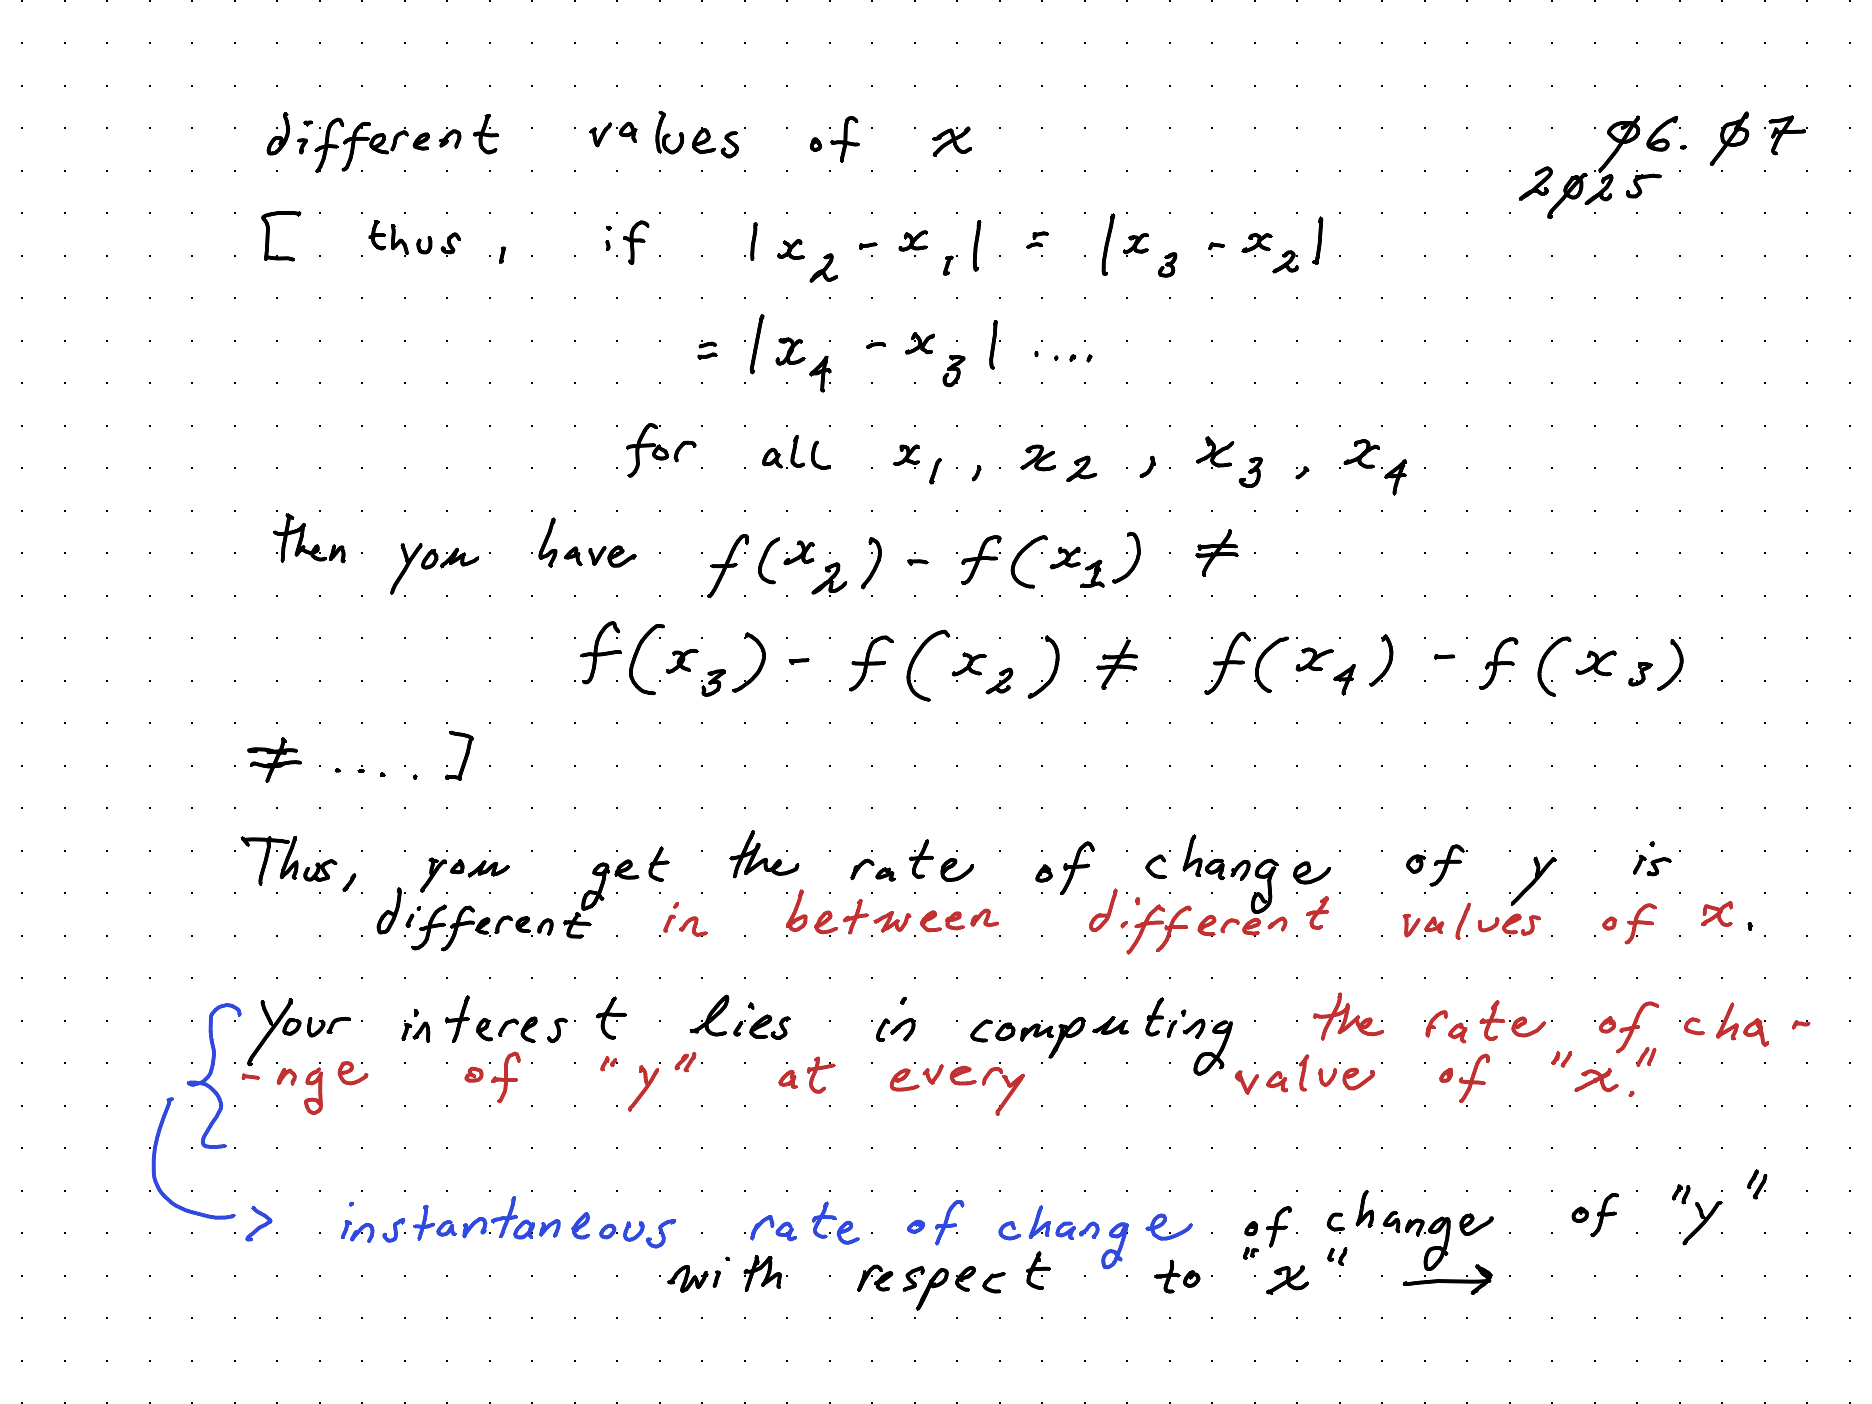 different values of x
ø6. ø7
2ø25
[ thus, if |x₂ - x₁| = |x₃ - x₂|
= |x₄ - x₃| ....
for all x₁, x₂, x₃, x₄
then you have f(x₂) - f(x₁) ≠
f(x₃) - f(x₂) ≠ f(x₄) - f(x₃)
≠ ..... ]
Thus, you get the rate of change of y is
different in between different values of x.
Your interest lies in computing the rate of cha-
-nge of "y" at every value of "x."
> instantaneous rate of change of change of "y"
with respect to "x" →